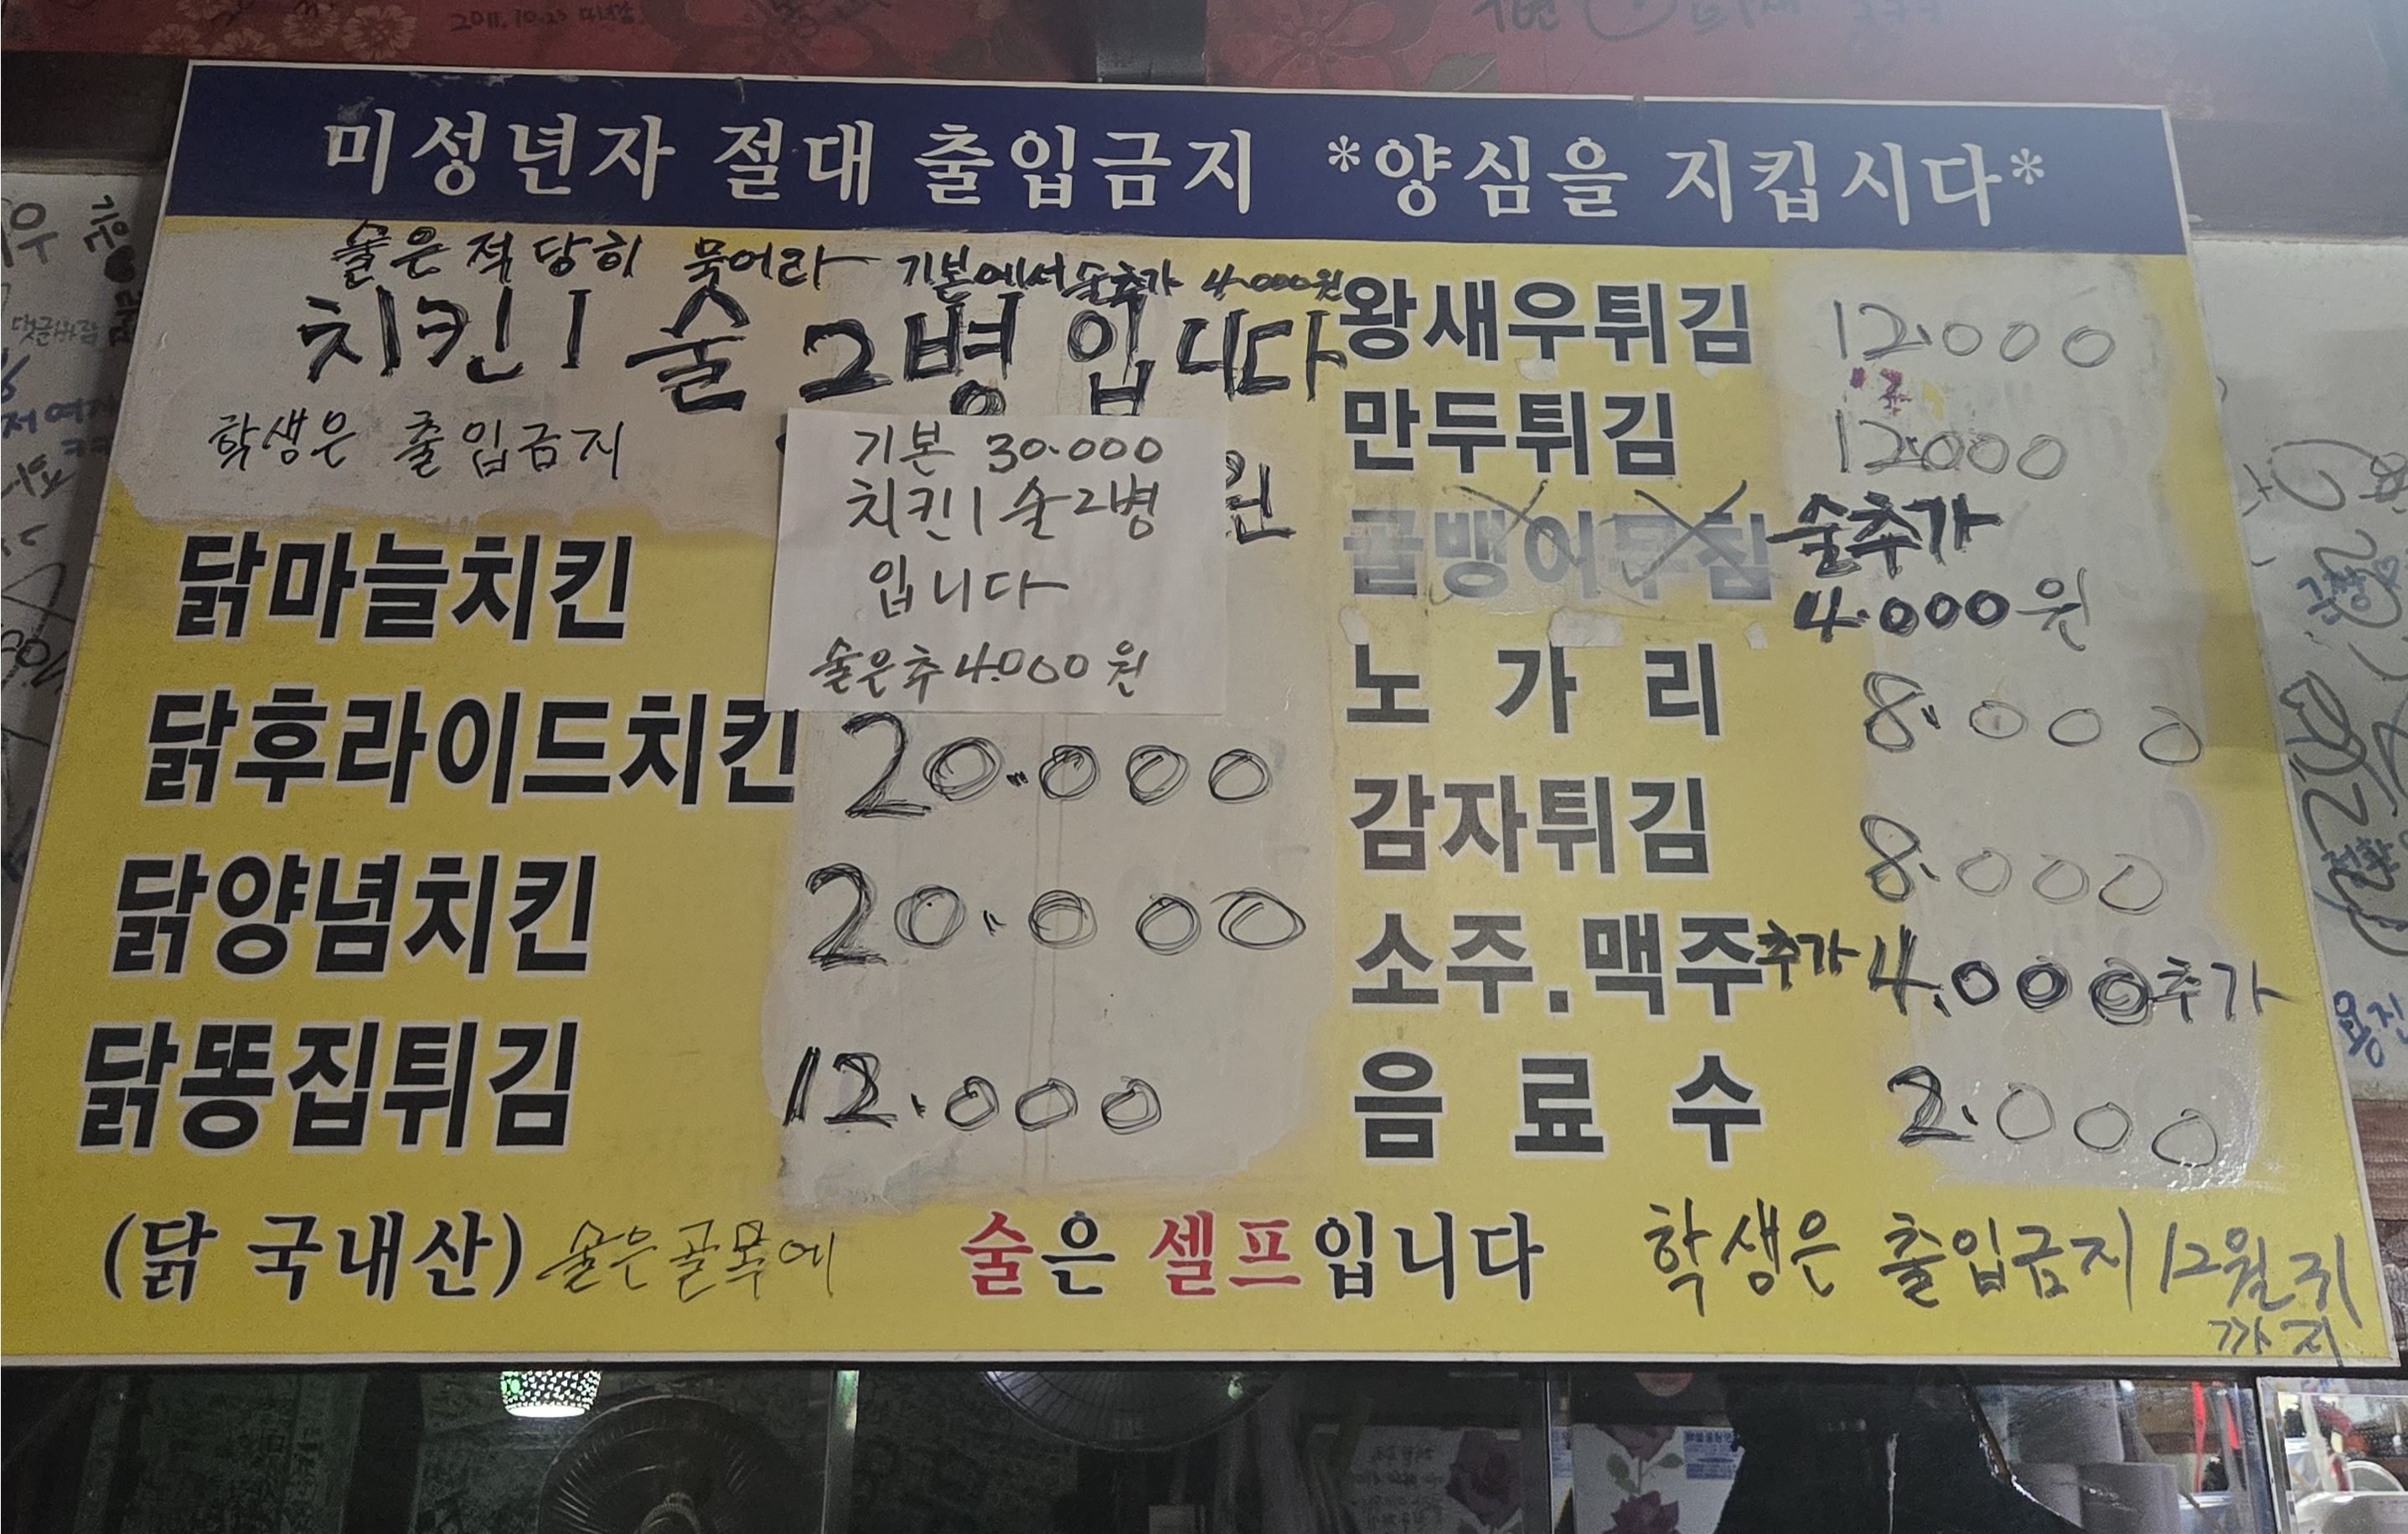 2011.10.23
미성년자 절대 출입금지 *양심을 지킵시다*
술은 적당히 묵어라 기본에서술추가 4.000원
치킨1 술 2병 입니다
학생은 출입금지
원
기본 30.000
치킨1 술2병
입니다
술은추 4.000원
닭마늘치킨
닭후라이드치킨 20.000
닭양념치킨 20.000
닭똥집튀김 12.000
왕새우튀김 12.000
만두튀김 12.000
골뱅이무침 술추가
4.000원
노 가 리 8.000
감자튀김 8.000
소주.맥주추가 4.000추가
음 료 수 2.000
(닭 국내산) 술은골목에 술은 셀프입니다 학생은 출입금지 12월
까지